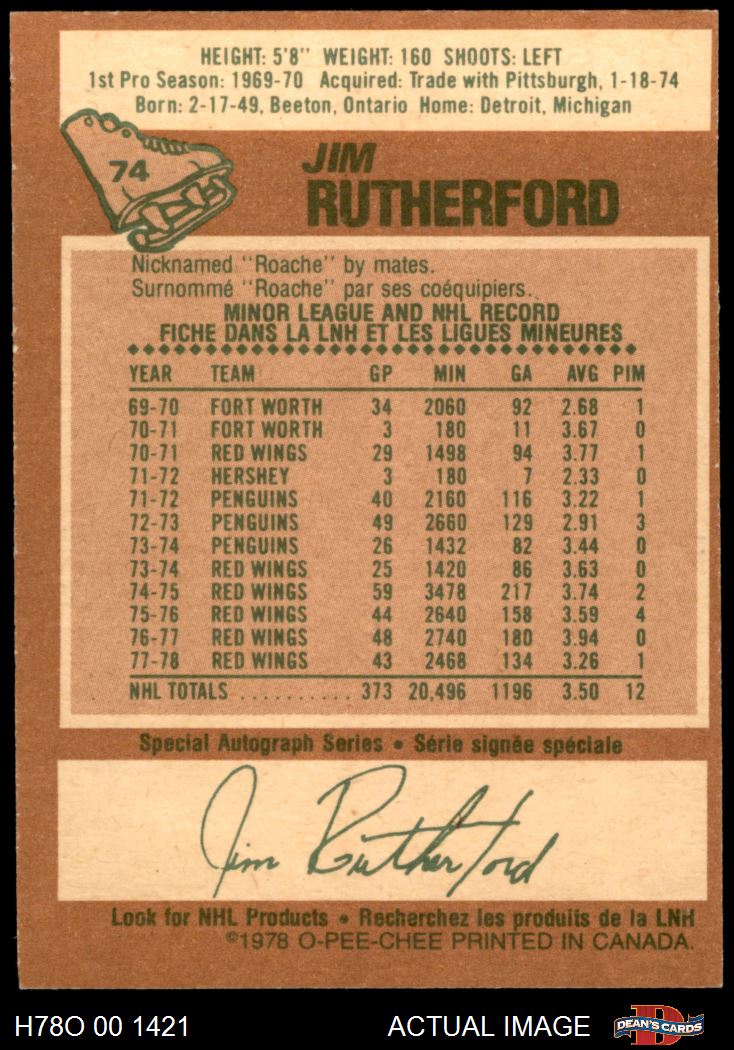 HEIGHT: 5'8" WEIGHT: 160 SHOOTS: LEFT
1st Pro Season: 1969-70 Acquired: Trade with Pittsburgh, 1-18-74
Born: 2-17-49, Beeton, Ontario Home: Detroit, Michigan
74
JIM
RUTHERFORD
Nicknamed "Roache" by mates.
Surnommé "Roache" par ses coéquipiers.
MINOR LEAGUE AND NHL RECORD
FICHE DANS LA LNH ET LES LIGUES MINEURES
YEAR TEAM GP MIN GA AVG PIM
69-70 FORT WORTH 34 2060 92 2.68 1
70-71 FORT WORTH 3 180 11 3.67 0
70-71 RED WINGS 29 1498 94 3.77 1
71-72 HERSHEY 3 180 7 2.33 0
71-72 PENGUINS 40 2160 116 3.22 1
72-73 PENGUINS 49 2660 129 2.91 3
73-74 PENGUINS 26 1432 82 3.44 0
73-74 RED WINGS 25 1420 86 3.63 0
74-75 RED WINGS 59 3478 217 3.74 2
75-76 RED WINGS 44 2640 158 3.59 4
76-77 RED WINGS 48 2740 180 3.94 0
77-78 RED WINGS 43 2468 134 3.26 1
NHL TOTALS .......... 373 20,496 1196 3.50 12
Special Autograph Series • Série signée spéciale
Jim Rutherford
Look for NHL Products • Recherchez les produits de la LNH
©1978 O-PEE-CHEE PRINTED IN CANADA.
H78O 00 1421 ACTUAL IMAGE D DEAN'S CARDS